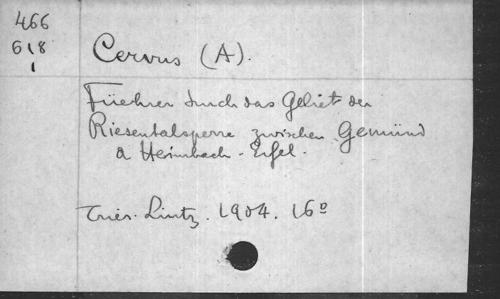 466
618
1
Cervus (A).
Füehrer durch das Gebiet der
Riesentalsperre zwischen Gemünd
a Heimbach - Eifel.
Trier. Lintz. 1904. 16°